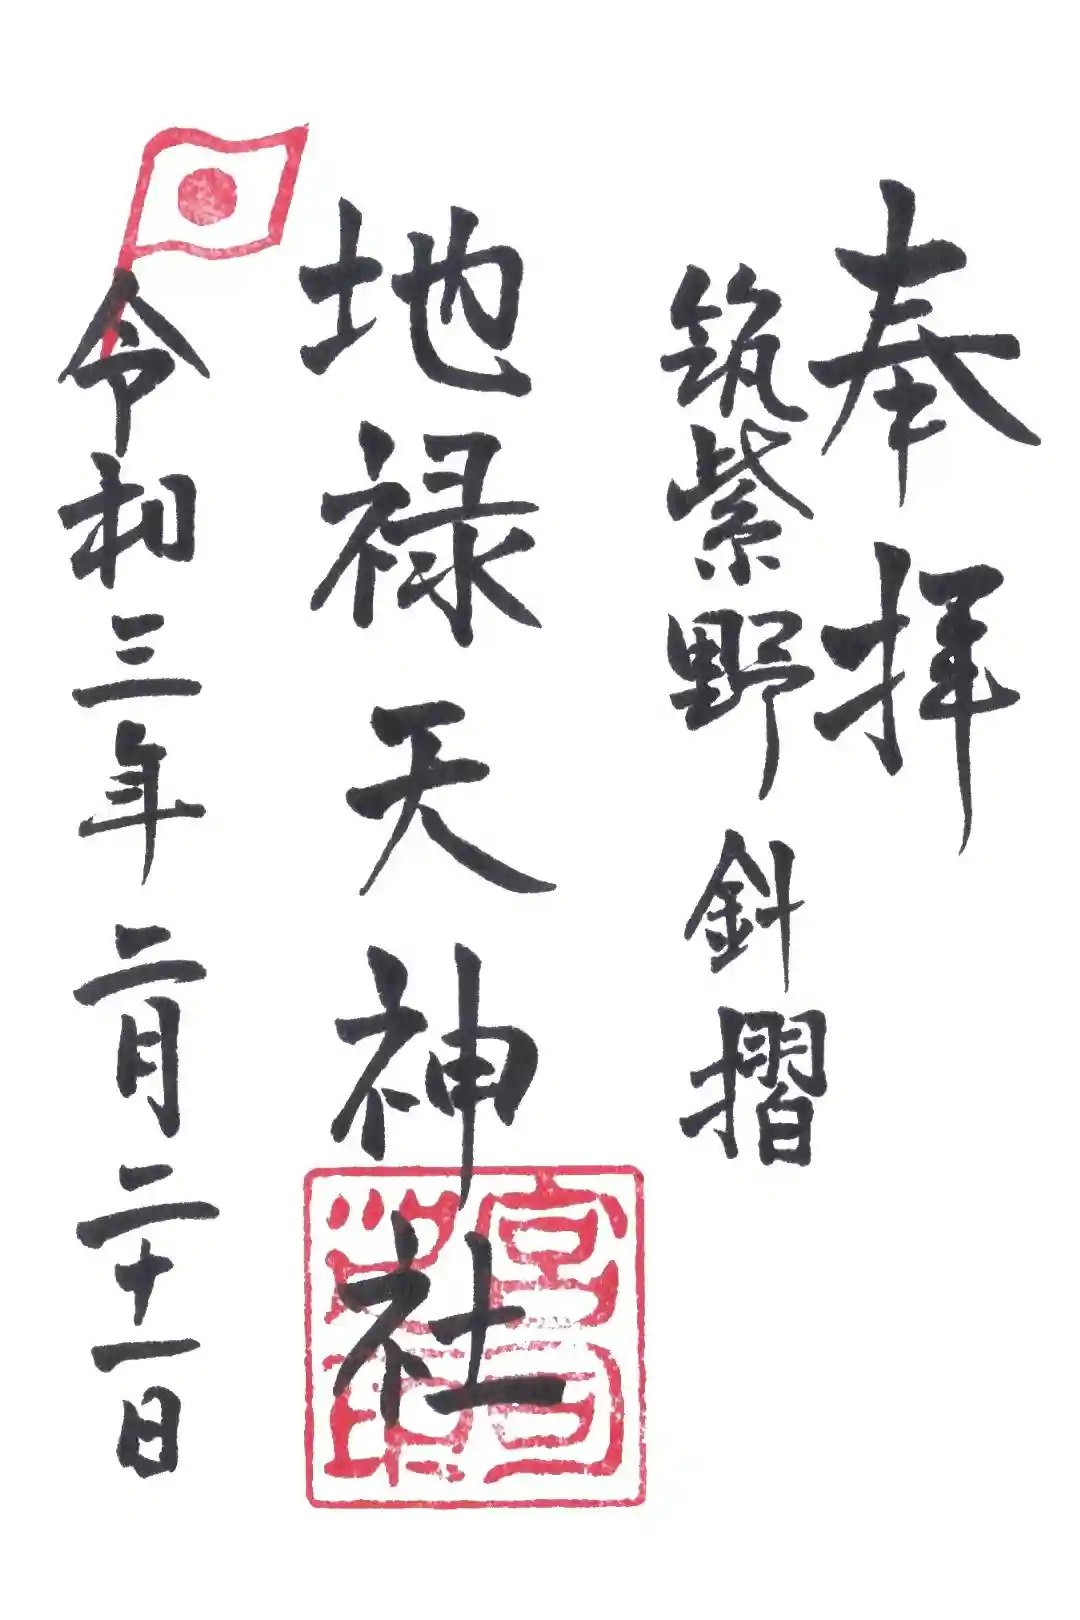 奉拝
筑紫野 針摺
地禄天神社
令和三年二月二十一日